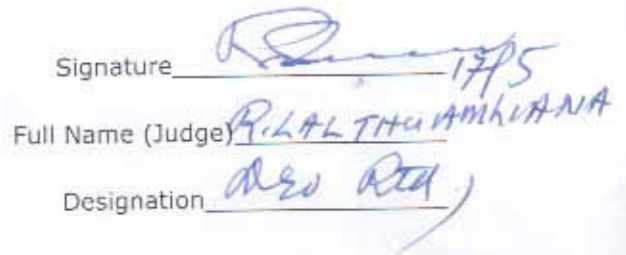 Signature 17/5
Full Name (Judge) R. LALTHUAMLIANA
Designation DEO Rtd